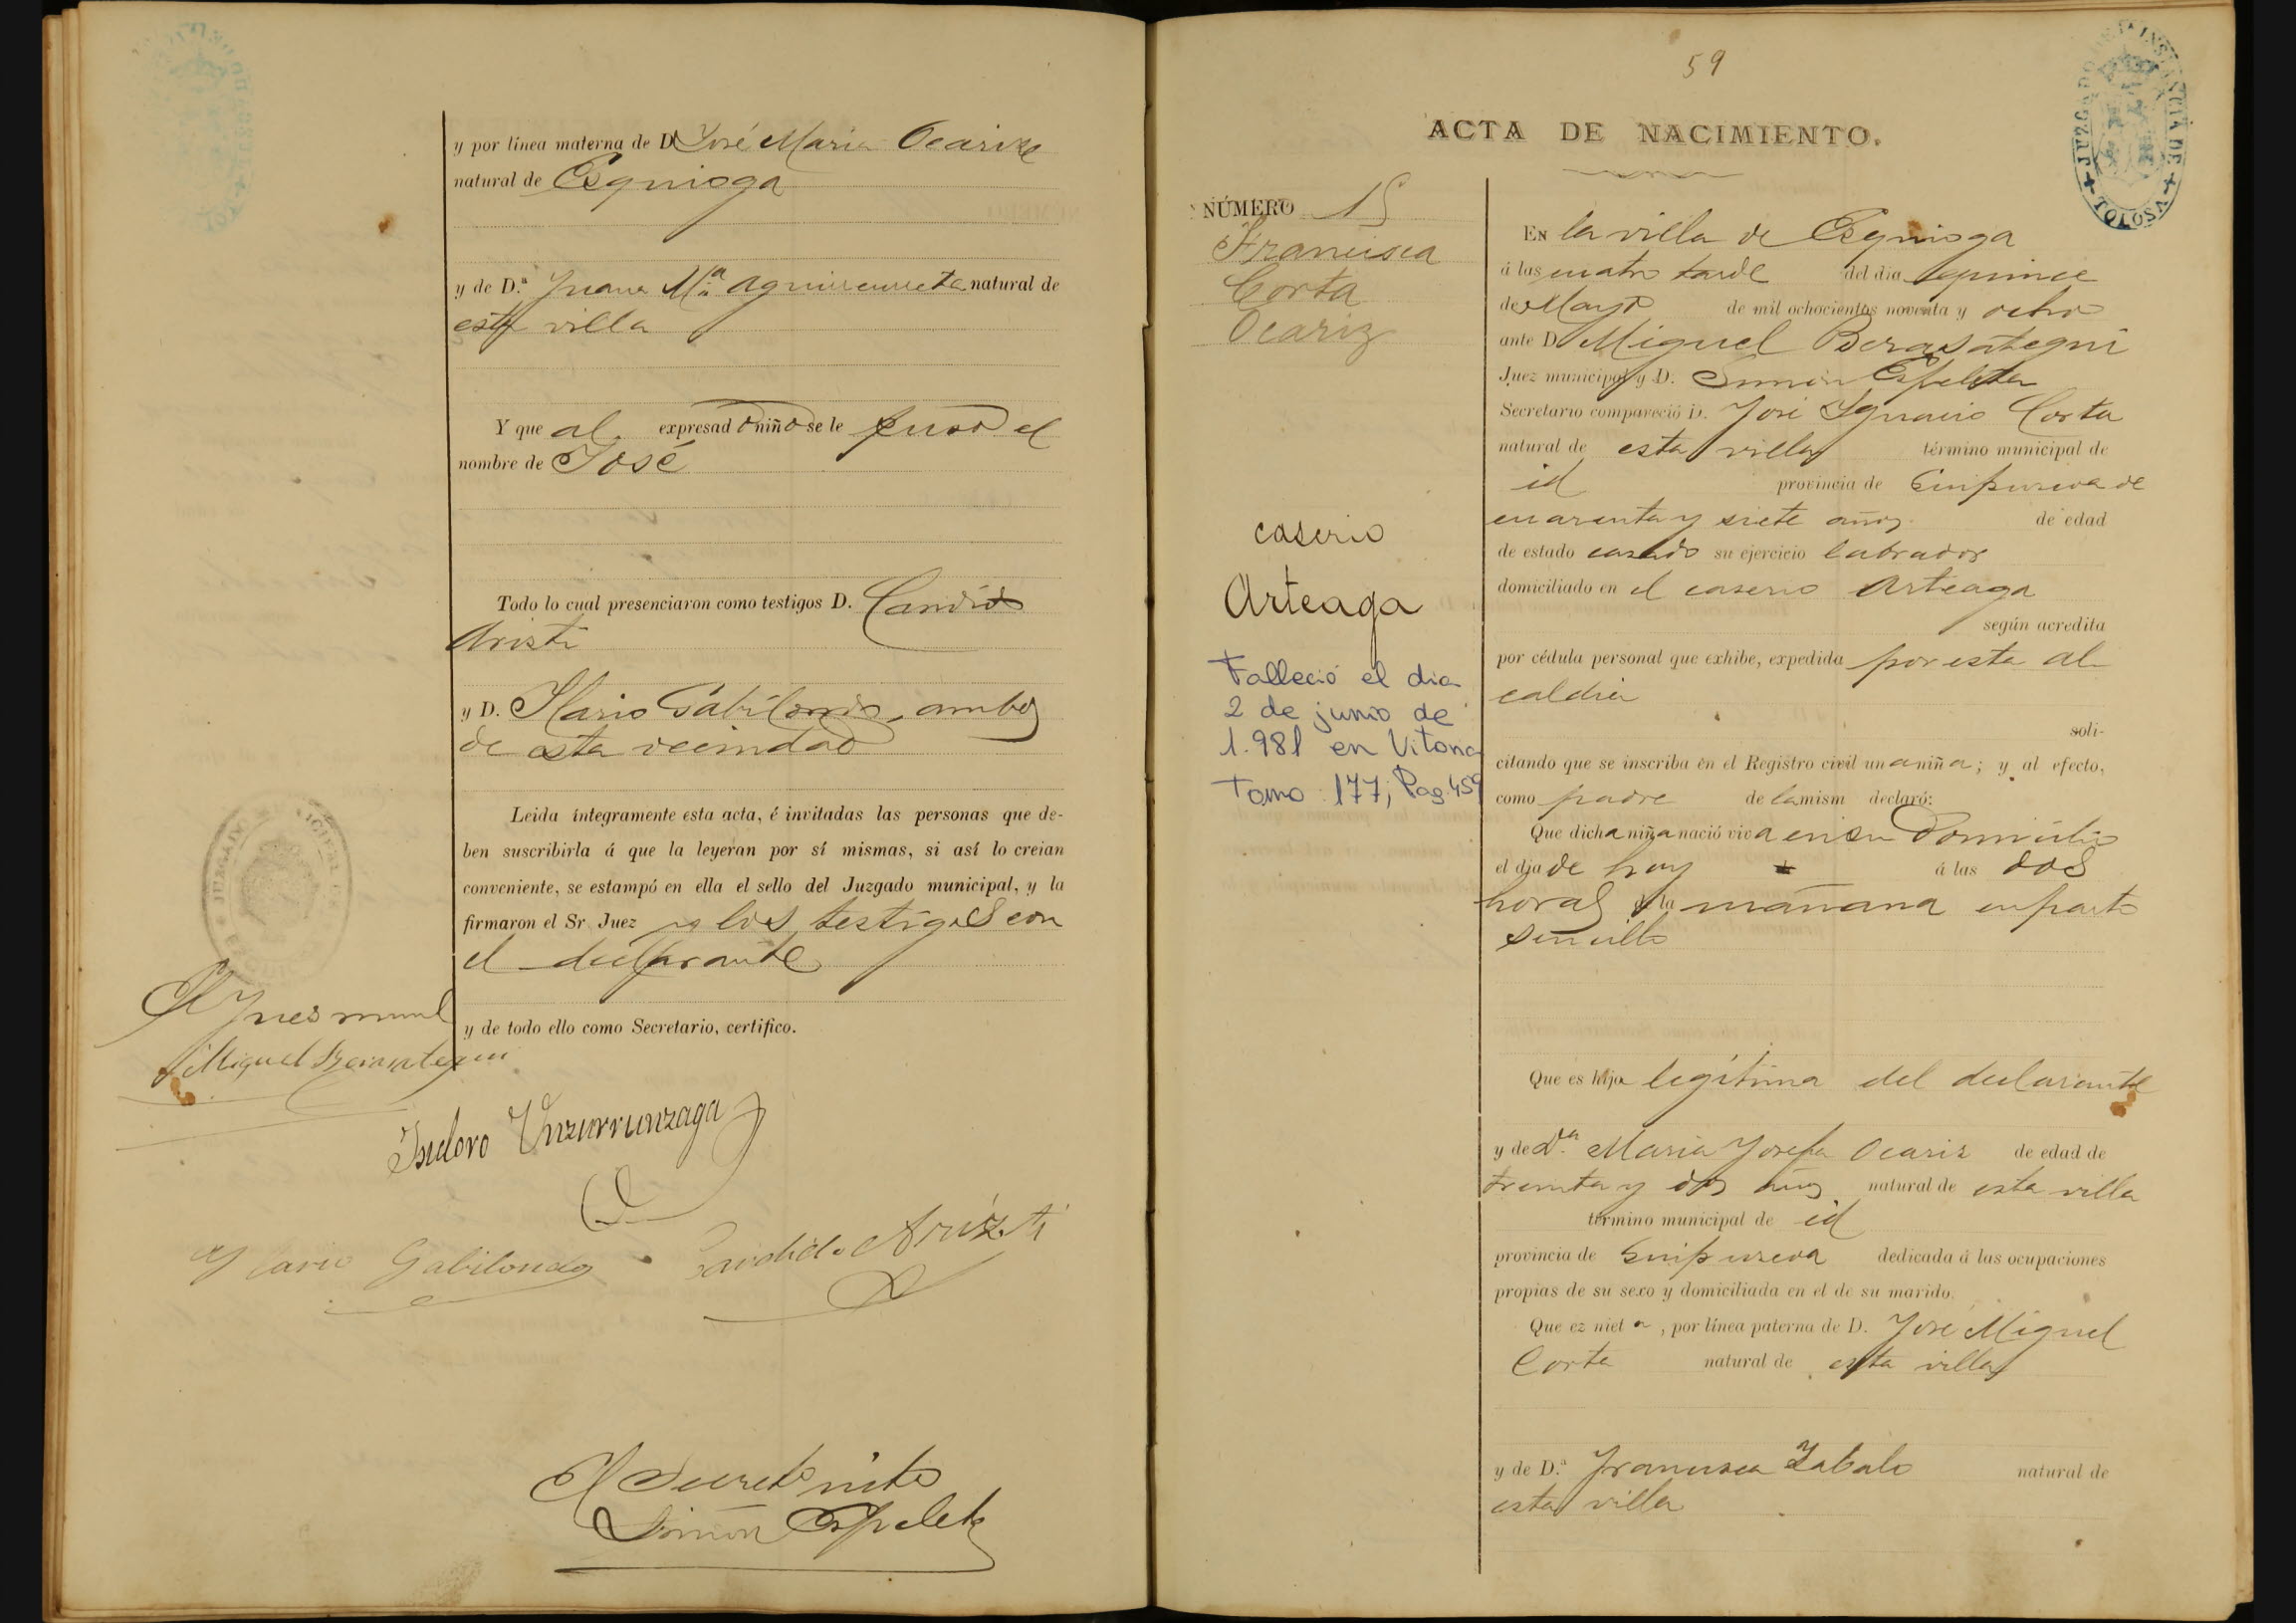 y por línea materna de D José Maria Ocariz
natural de Esquioga
y de D.ª Juana Mª Aguirreurreta natural de
esta villa
Y que al expresado niño se le puso el
nombre de José
Todo lo cual presenciaron como testigos D. Candido
Aristi
y D. Ilario Gabilondo, ambos
de esta vecindad
Leida íntegramente esta acta, é invitadas las personas que de-
ben suscribirla á que la leyeran por sí mismas, si así lo creian
conveniente, se estampó en ella el sello del Juzgado municipal, y la
firmaron el Sr. Juez y los testigos con
el declarante
y de todo ello como Secretario, certifico.
El Juez
Miguel Berasategui
Isidoro Unzurrunzaga
Ylario Gabilondo
Candido Arizti
El Secret.º
Simón Espeleta
59
ACTA DE NACIMIENTO.
JUZGADO DE 1ª INSTANCIA DE TOLOSA
NÚMERO 15
Francisca
Corta
Ocariz
caserio
Arteaga
Falleció el dia
2 de junio de
1.981 en Vitoria
Tomo 177; Pag. 459
EN la villa de Esquioga
á las cuatro tarde del dia quince
de Mayo de mil ochocientos noventa y ocho
ante D Miguel Berasategui
Juez municipal y D. Simón Espeleta
Secretario compareció D. José Ygnacio Corta
natural de esta villa término municipal de
id provincia de Guipuzcoa de
cuarenta y siete años de edad
de estado casado su ejercicio labrador
domiciliado en el caserio Arteaga
según acredita
por cédula personal que exhibe, expedida por esta al
caldia
soli-
citando que se inscriba en el Registro civil una niña; y al efecto,
como padre de la mism declaró:
Que dicha niña nació viva en su domicilio
el dia de hoy á las dos
horas de la mañana en parto
sencillo
Que es hija legítima del declarante
y de Dª. Maria Josefa Ocariz de edad de
treinta y dos años natural de esta villa
término municipal de id
provincia de Guipuzcoa dedicada á las ocupaciones
propias de su sexo y domiciliada en el de su marido.
Que es nieta, por línea paterna de D. José Miguel
Corta natural de esta villa
y de D.ª Francisca Zabalo natural de
esta villa